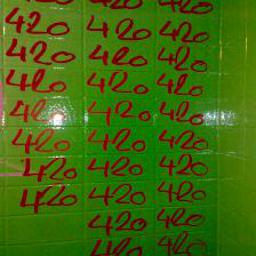 420 420 420
420 420 420
420 420 420
420 420 420
420 420 420
420 420 420
420 420 420
420 420 420
420 420
420 420